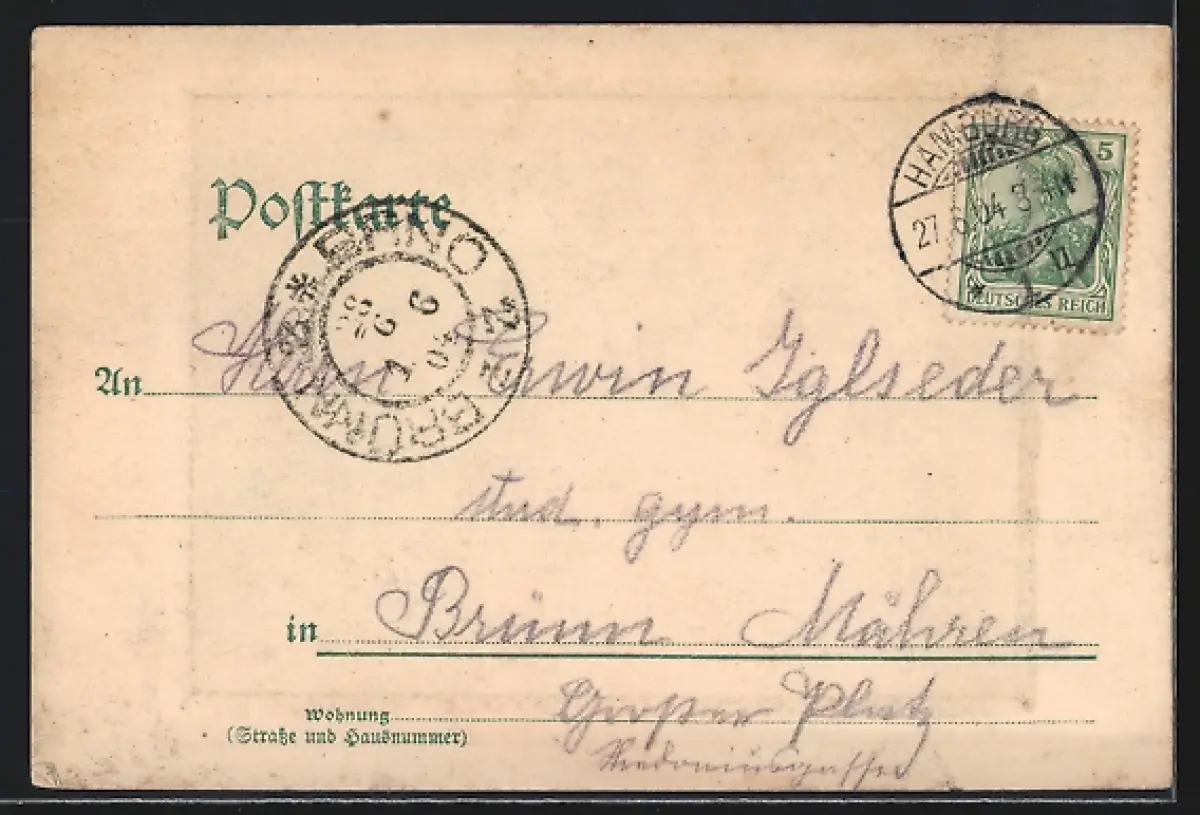 Postkarte
HAMBURG
27.6.04 3-4N
* 1 u
5
DEUTSCHES REICH
BRNO 2
* BRÜNN 2 *
04
An Herrn Erwin Iglseder
stud. gym.
in Brünn Mähren
Wohnung Großer Platz
(Straße und Hausnummer)